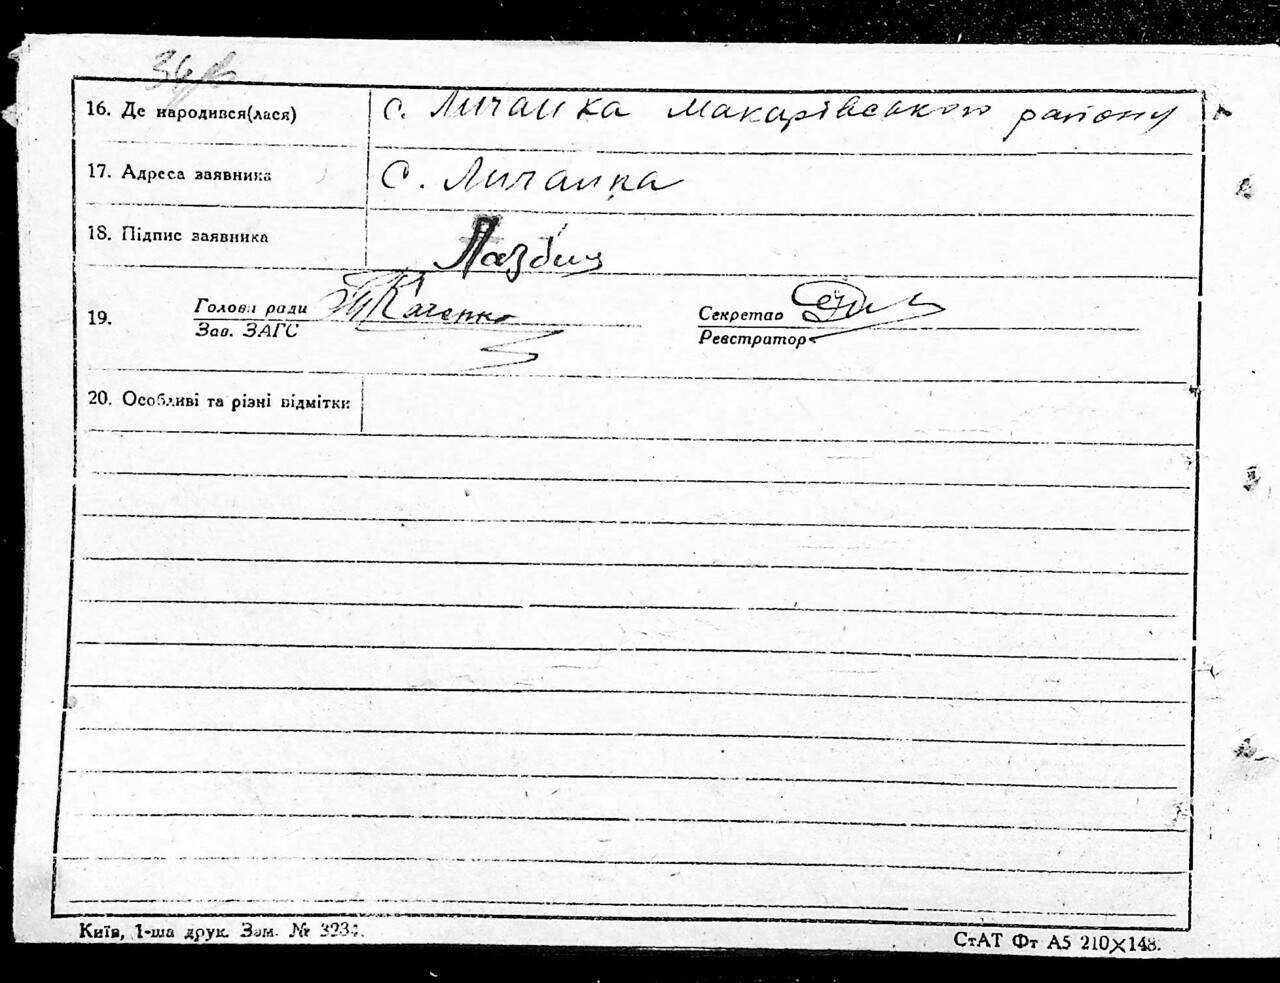 16. Де народився(лася) с. Личанка Макарівського району
17. Адреса заявника с. Личанка
18. Підпис заявника
19. Голова ради Ткаченко Секретар
Зав. ЗАГС Реєстратор
20. Особливі та різні відмітки
Київ, 1-ша друк. Зам. №
СтАТ Фт А5 210×148.